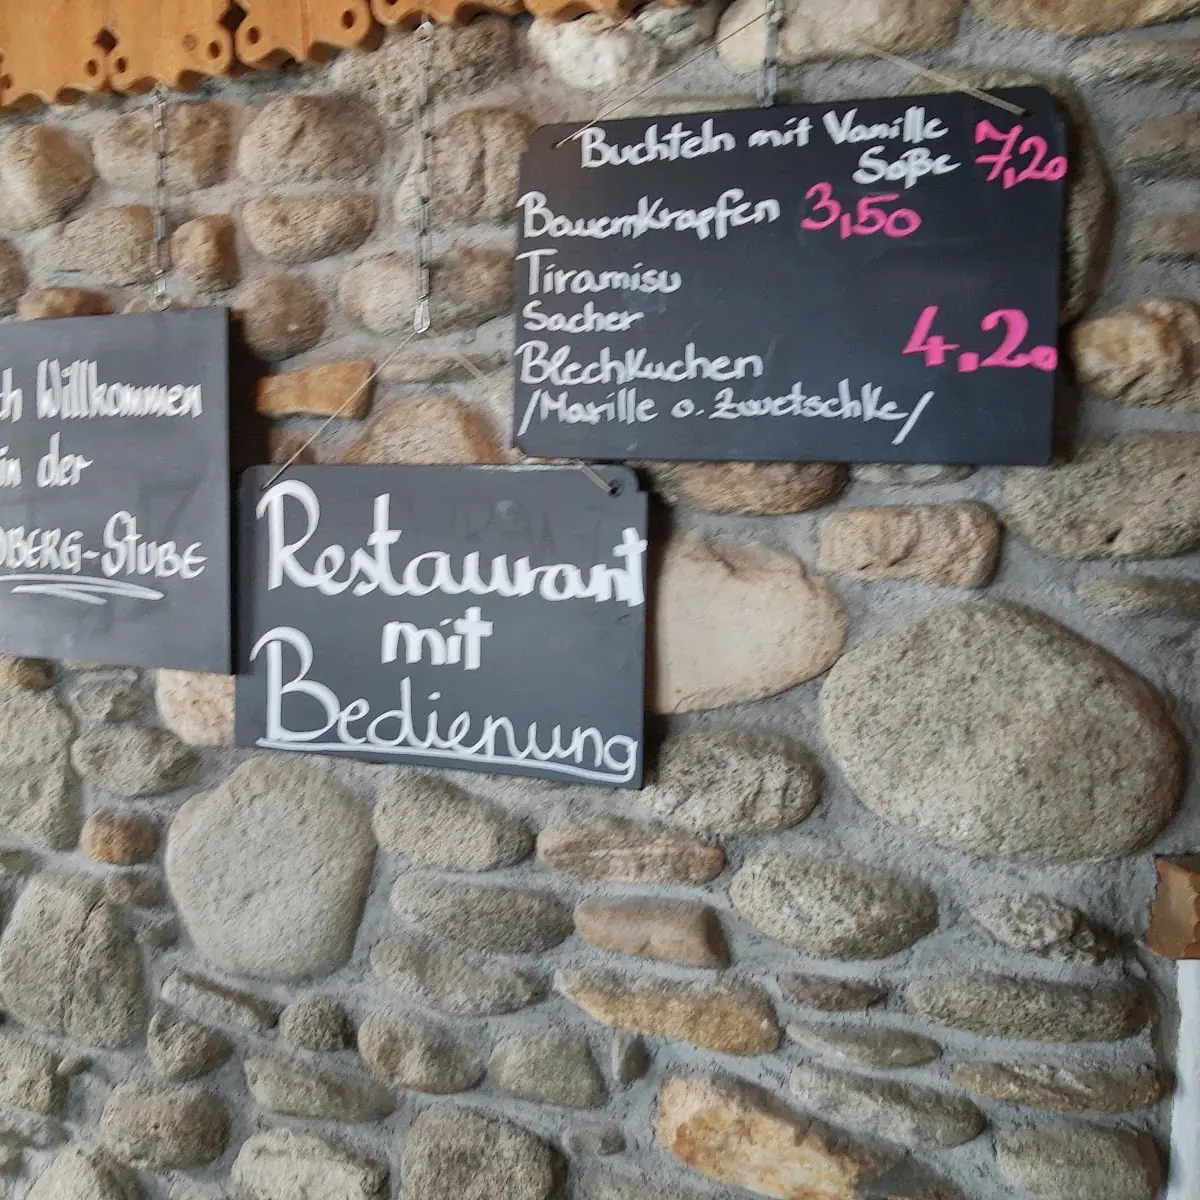 Buchteln mit Vanille
Soße 7,20
Bauernkrapfen 3,50
Tiramisu
Sacher
Blechkuchen 4,20
/Marille o. Zwetschke/
Willkommen
in der
Stube
Restaurant
mit
Bedienung